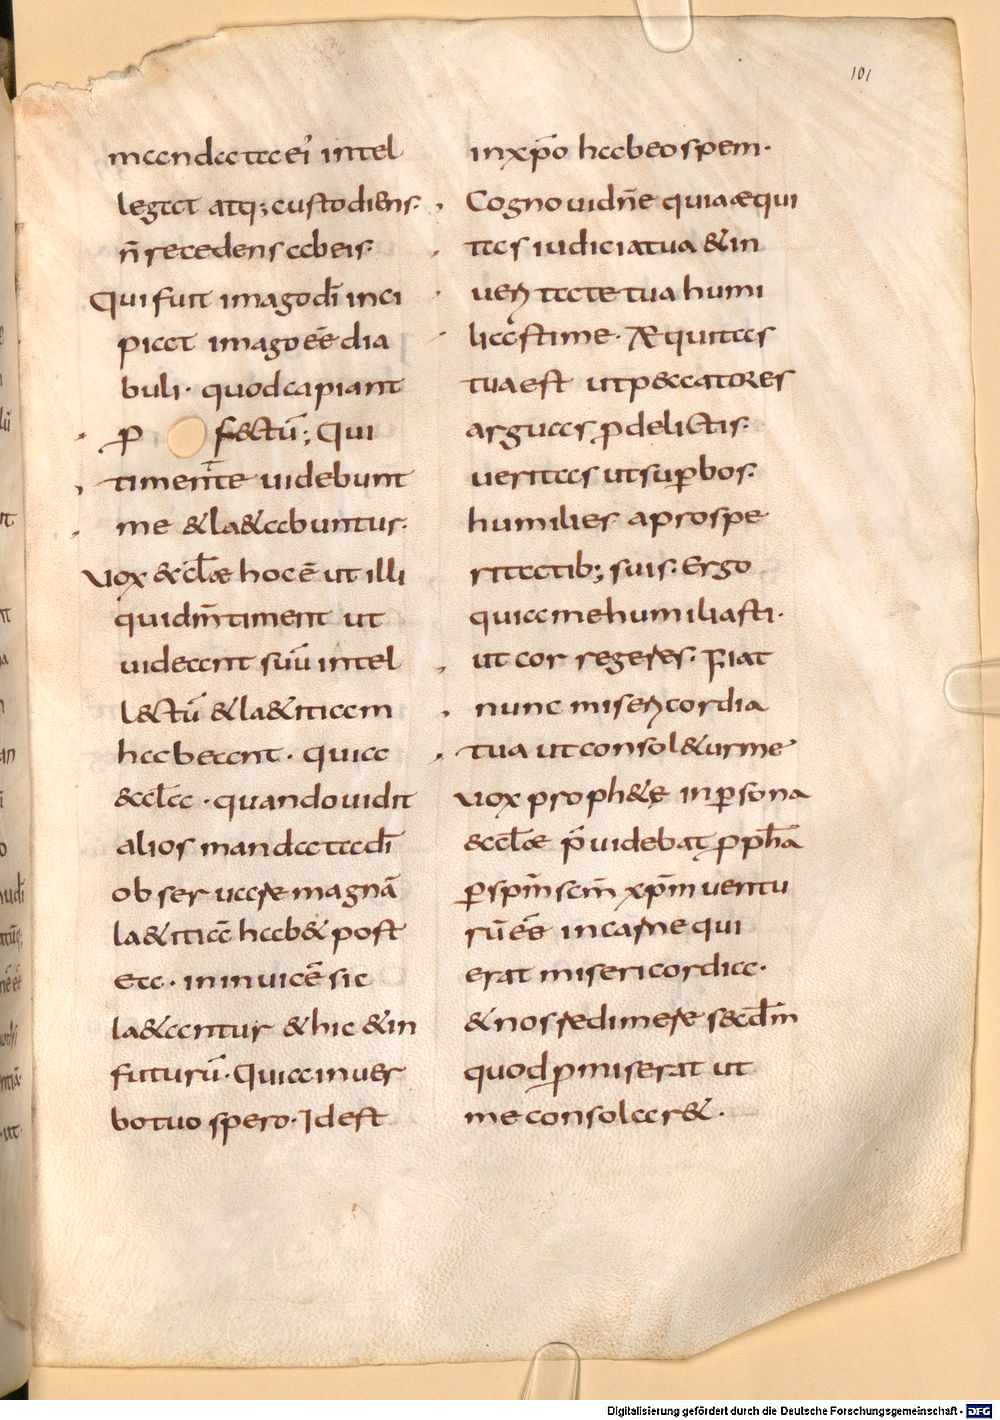 101
mandata ei᾽ intel
leget atq; custodiens.
n̄ recedens ab eis.
Qui fuit imago dī inci
piat imago eē dia
buli. quod capiant
ꝑ fectū; Qui
timent te videbunt
me & la&abuntur.
vox &cl̄æ hoc ē ut illi
qui dn̄m timent ut
uideant suū intel
l&tū & la&itiam
habeant. quia
&ccl̄a. quando uidit
alios mandata dī
obseruare magnā
la&itiā hab& post
ea. in inuicē sic
la&antur & hic &in
futurū. Quia in uer
bo tuo spero. Id est
in xp̄o habeo spem.
Cognoui dn̄e quia æqui
tas iudicia tua & in
ueritate tua humi
liasti me. Æquitas
tua est ut p&ccatores
arguas ꝓ delictis.
ueritas ut suꝑbos.
humilies a prospe
ritatib; suis. Ergo
quia me humiliasti.
ut cor regeres. Fiat
nunc misericordia
tua ut consol&ur me
vox proph&ę in ꝑsona
&ccl̄æ p̄uidebat ꝓph̄a
ꝑ sp̄m sc̄m xp̄m uentu
rū eē in carne qui
erat misericordia.
& nos redimere s&cd̄m
quod ꝓmiserat ut
me consolar&.
Digitalisierung gefördert durch die Deutsche Forschungsgemeinschaft - DFG